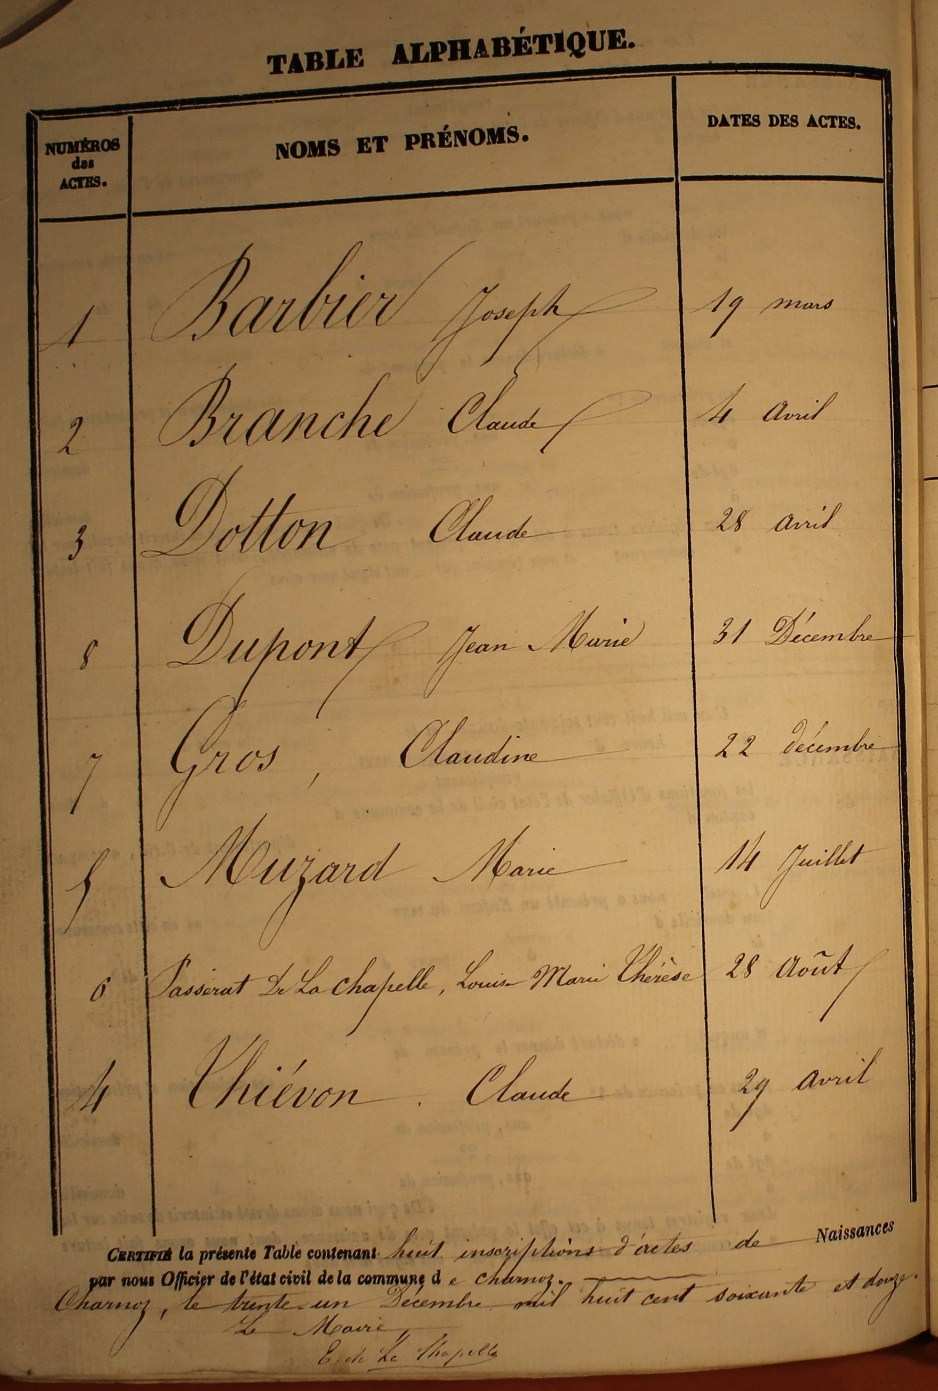 TABLE ALPHABÉTIQUE.
NUMÉROS des ACTES. NOMS ET PRÉNOMS. DATES DES ACTES.
1 Barbier Joseph 19 mars
2 Branche Claude 4 avril
3 Dotton Claude 28 avril
8 Dupont Jean Marie 31 Décembre
7 Gros, Claudine 22 décembre
5 Muzard Marie 14 Juillet
6 Passerat De La chapelle, Louis Marie Thérèse 28 Août
4 Thiévon. Claude 29 avril
CERTIFIÉ la présente Table contenant huit inscriptions d'actes de Naissances
par nous Officier de l'état civil de la commune de charnoz.
Charnoz, le trente-un Décembre mil huit cent soixante et douze.
Le Maire
E. de La Chapelle